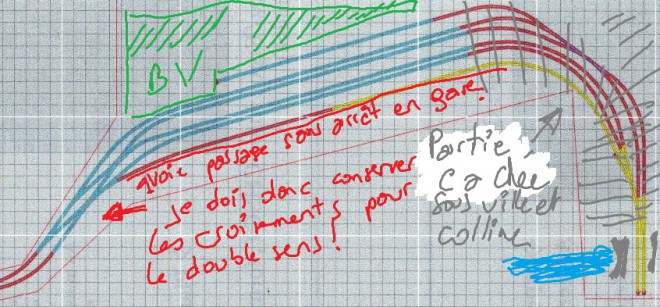 BV
voie passage sans arrêt en gare!
Je dois donc conserver
les croisements pour
le double sens!
Partie
cachée
sous ville et
colline